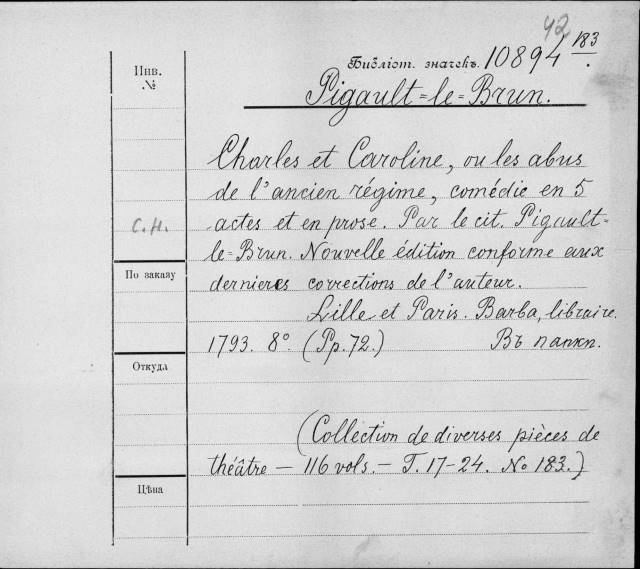 42
Инв.
№
Библіот. значекъ. 10894 183.
Pigault=le=Brun.
Charles et Caroline, ou les abus
de l'ancien régime, comédie en 5
actes et en prose. Par le cit. Pigault-
le=Brun. Nouvelle édition conforme aux
dernieres corrections de l'auteur.
Lille et Paris. Barba, libraire.
1793. 8° (Pp. 72.) Въ папкѣ.
(Collection de diverses pièces de
théâtre — 116 vols. — T. 17-24. No 183.)
С.Н.
По заказу
Откуда
Цѣна